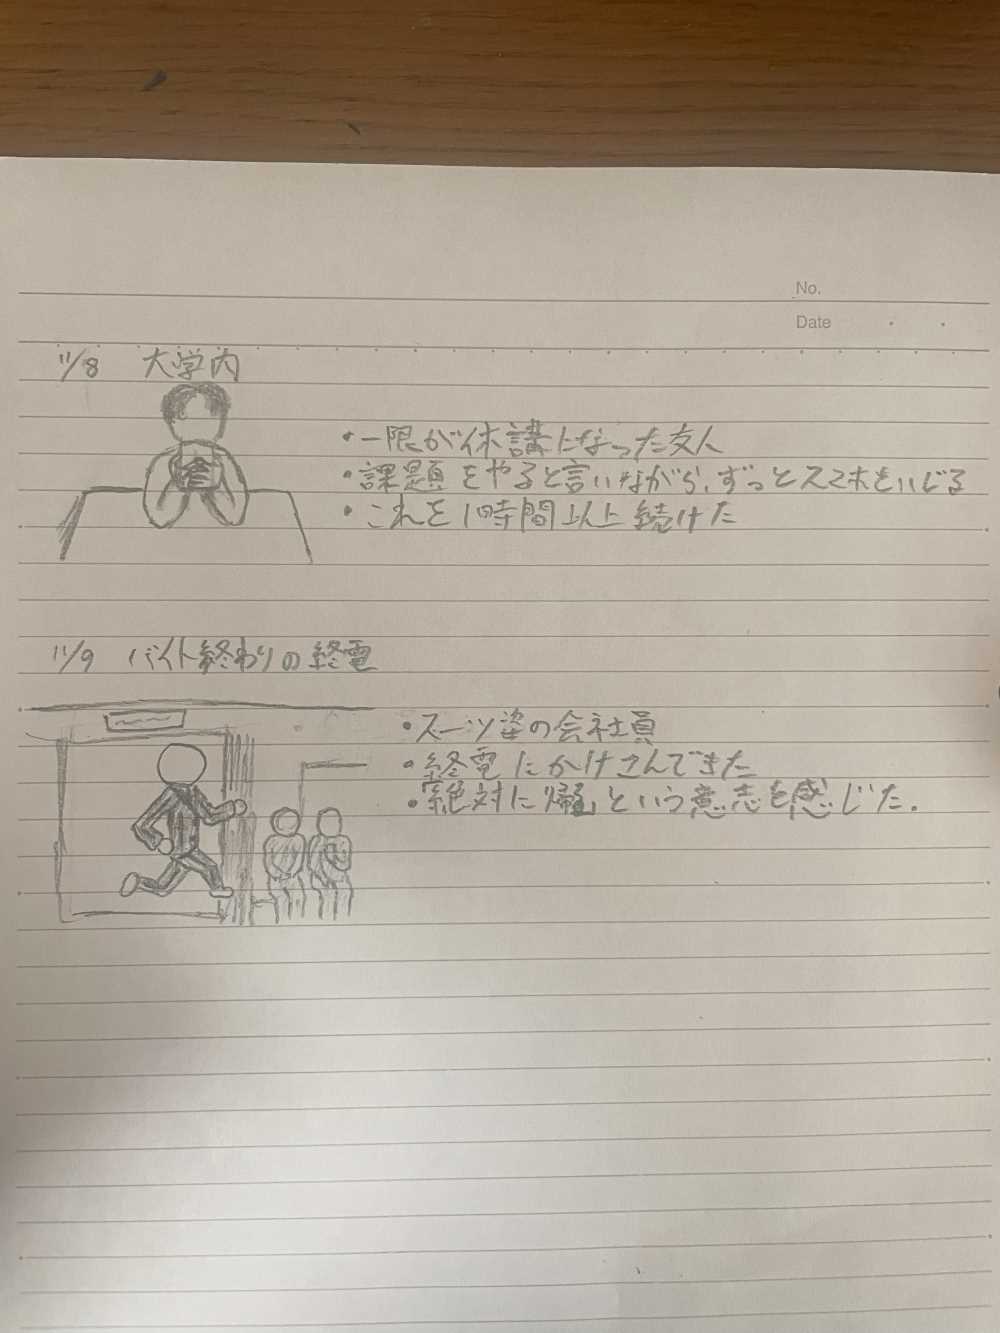 No.
Date
11/8 大学内
・一限が休講になった友人
・課題をやると言いながら、ずっとスマホをいじる
・これを1時間以上続けた
11/9 バイト終わりの終電
・スーツ姿の会社員
・終電にかけこんできた
・「絶対に帰る」という意志を感じた.